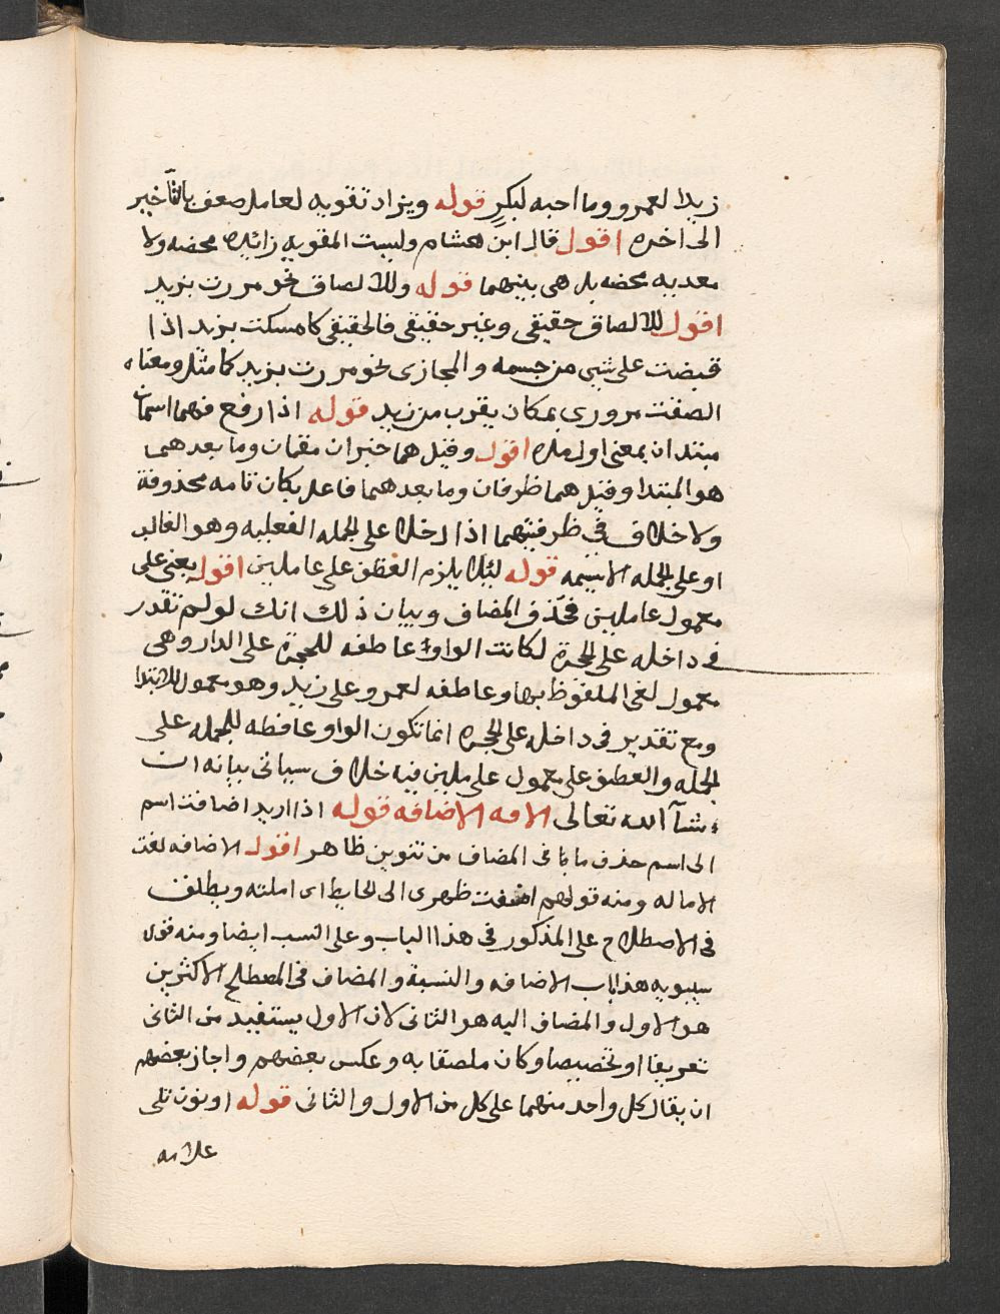 زيدا لعمرو وما احبه لبكر قوله ويزاد تقويه لعامل ضعف بالتأخير
الى اخره اقول قال ابن هشام وليست المقويه زائده محضه ولا
معديه محضه بل هى بينهما قوله وللالصاق نحو مررت بزيد
اقول للالصاق حقيقى وغير حقيقى فالحقيقى كامسكت بزيد اذا
قبضت على شى من جسمه والمجازى نحو مررت بزيد كما مثل ومعناه
الصقت مرورى بمكان يقرب من زيد قوله اذا رفع فهما اسمان
مبتدان بمعنى اول مده اقول وقيل هما خبران مقدمان وما بعدهما
هو المبتدا وقيل هما ظرفان وما بعدهما فاعل بكان تامه محذوفة
ولا خلاف فى ظرفيتهما اذا دخلا على الجمله الفعليه وهو الغالب
او على الجمله الاسميه قوله لئلا يلزم العطف على عاملين اقول يعنى على
معمول عاملين فحذف المضاف وبيان ذلك انك لو لم تقدر
فى داخله على الحجرة لكانت الواو عاطفه للحجرة على الدار وهى
معمول لفى الملفوظ بها وعاطفه لعمرو على زيد وهو معمول للابتدا
ومع تقدير فى داخله على الحجره انما تكون الواو عاطفه للجمله على
الجمله والعطف على معمول عاملين فيه خلاف سياتى بيانه ان
شآ الله تعالى الاضافه قوله اذا اريد اضافت اسم
الى اسم حذف ما با فى المضاف من تنوين ظاهر اقول الاضافه لغت
الاماله ومنه قولهم اضفت ظهرى الى الحايط اى املته ويطلق
فى الاصطلاح على المذكور فى هذا الباب وعلى النسب ايضا ومنه قول
سيبويه هذا باب الاضافه والنسبة والمضاف فى المصطلح الاكثرين
هو الاول والمضاف اليه هو الثانى لان الاول يستفيد من الثانى
تعريفا او تخصيصا وكان ملصقا به وعكس بعضهم واجاز بعضهم
ان يقال كل واحد منهما على كل من الاول والثانى قوله او نون تلى
علامه